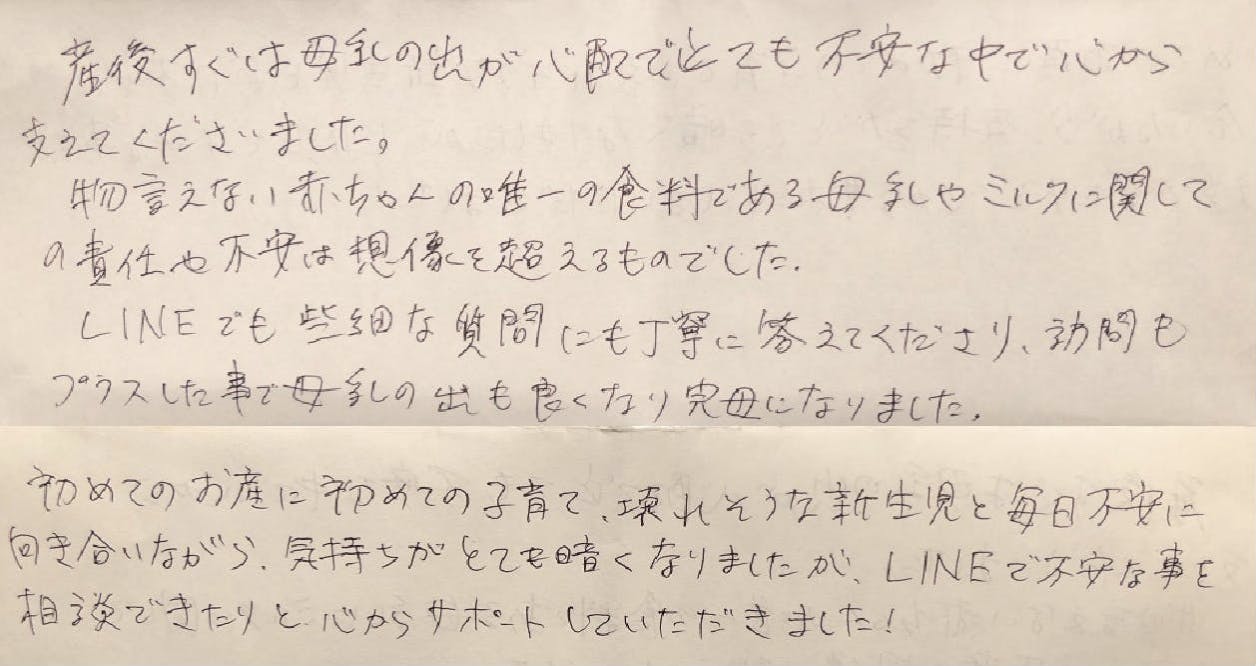 産後すぐは母乳の出が心配で、とても不安な中で心から
支えてくださいました。
物言えない赤ちゃんの唯一の食料である母乳やミルクに関して
の責任や不安は想像を超えるものでした.
LINEでも些細な質問にも丁寧に答えてくださり、訪問も
プラスした事で母乳の出も良くなり完母になりました.
初めてのお産に初めての子育て、壊れそうな新生児と毎日不安に
向き合いながら、気持ちがとても暗くなりましたが、LINEで不安な事を
相談できたりと心からサポートしていただきました!